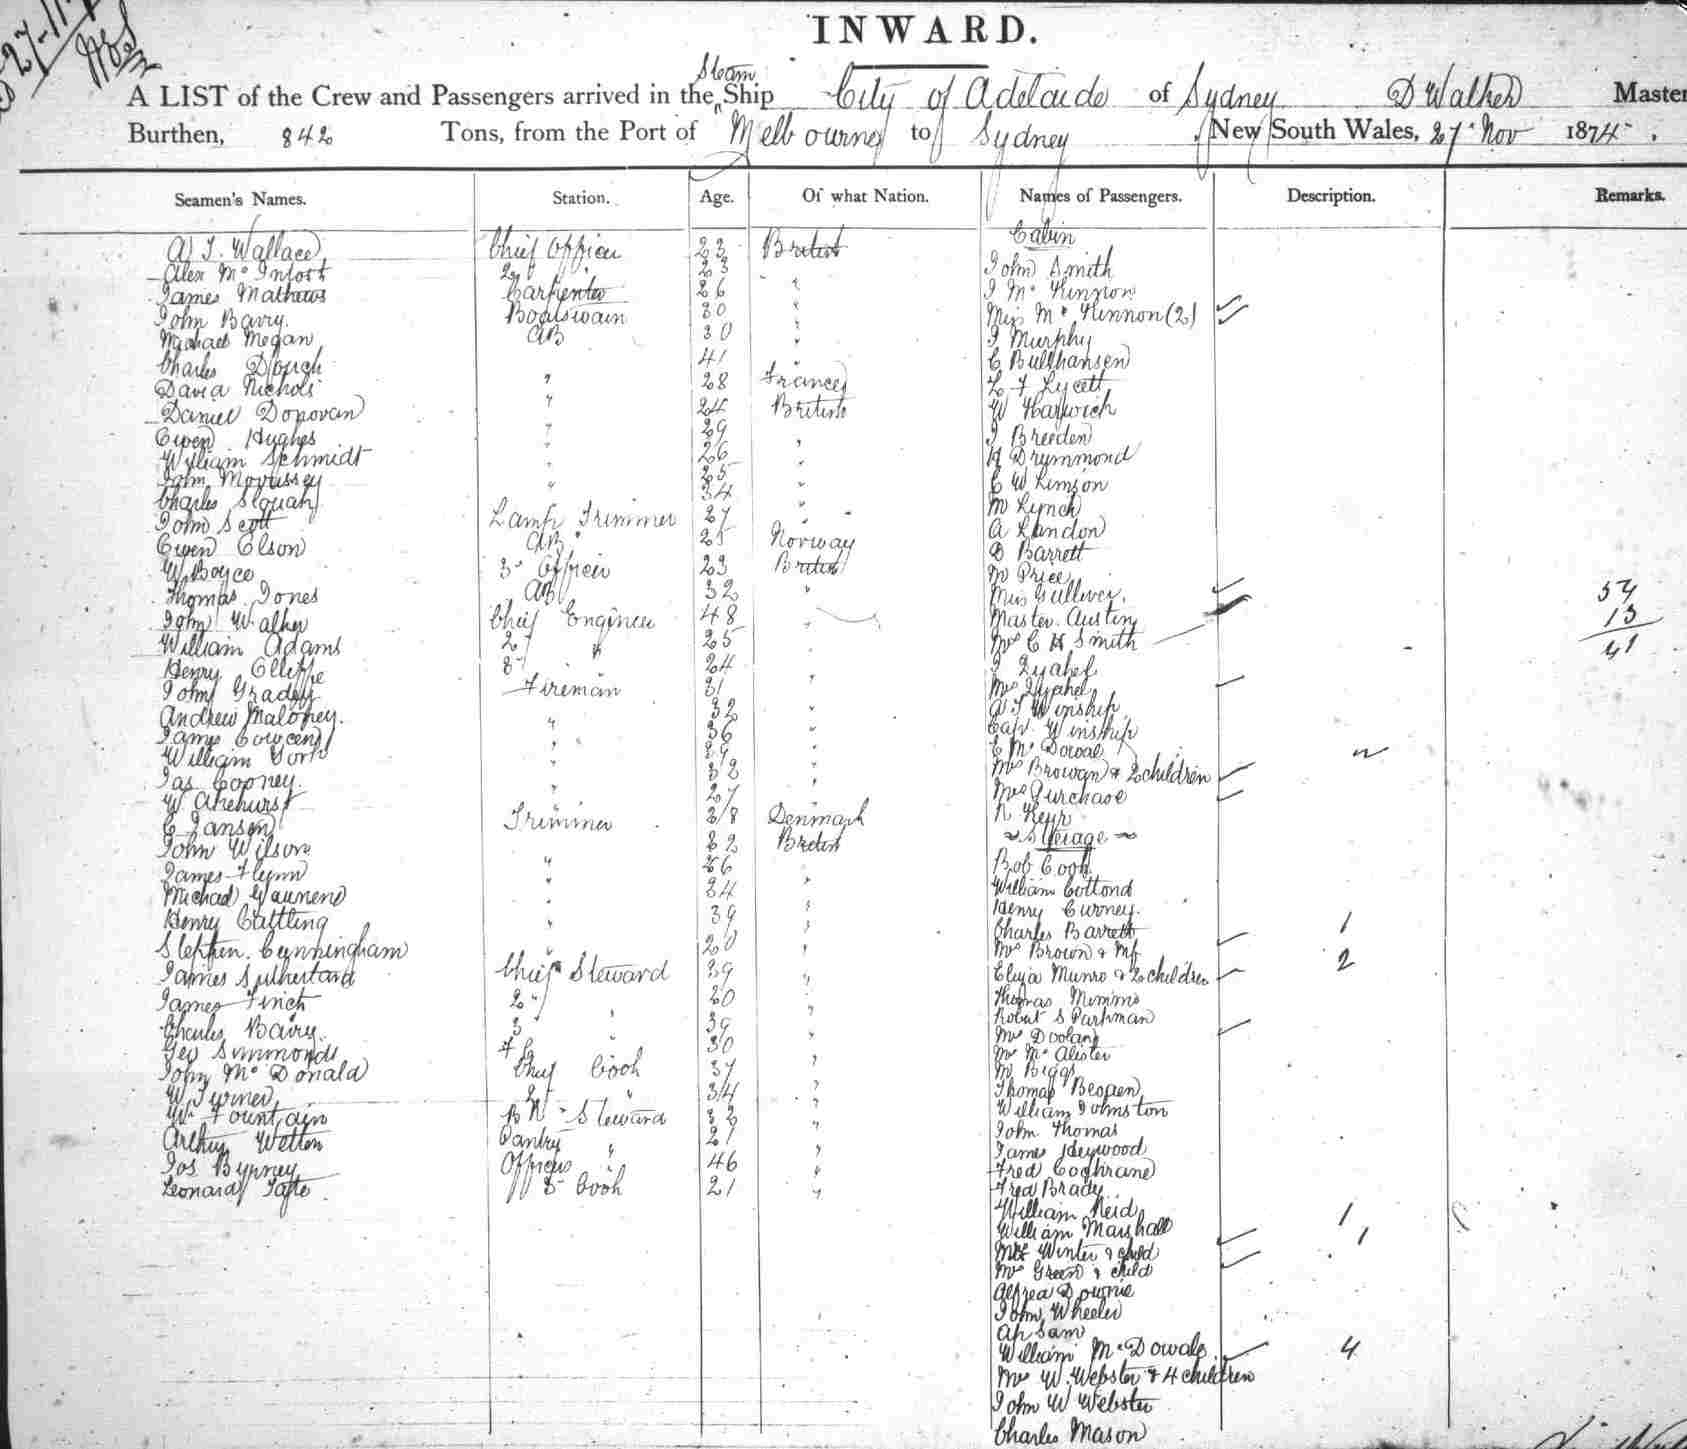 27-11-
INWARD.
A LIST of the Crew and Passengers arrived in the Steam Ship City of Adelaide of Sydney D Walker Master
Burthen, 842 Tons, from the Port of Melbourne to Sydney New South Wales, 27 Nov 1874.
Seamen's Names. Station. Age. Of what Nation. Names of Passengers. Description. Remarks.
Cabin
Wallace Chief Officer 23 British
Alex 2 " 23 John Smith
James Mathews Carpenter 26 " J McKinnon
John Barry. Boatswain 30 " Miss McKinnon (2)
Michael Megan AB 30 " J Murphy
Charles 41 C
David Nichols " 28 France L F Lycett
Daniel Donovan " 24 British W Harwich
Owen Hughes " 29 " J Breeden
William Schmidt " 26 " H Drummond
John Morrissey " 25 " C W Simson
Charles " 34 " M Lynch
John Scott Lamp Trimmer 27 " A Landon
Owen Olson AB 25 Norway D Barrett
W. Boyce 3rd Officer 23 British M Price
Thomas Jones AB 32 " Miss Gulliver. 54
John Walker Chief Engineer 48 " Master Austin 13
William Adams 2 " 25 " Mrs C H Smith 41
Henry 3 " 24 " J
John Grady Fireman 31 " Mrs
Andrew Maloney. " 32 " Winship
James " 36 " Capt. Winship
William York " 29 " C McDowal
Jas Cooney. " 32 " Mrs & 2 children
W " 27 " Mrs Purchase
C Jansen Trimmer 28 Denmark R Kerr
John Wilson " 22 British Steerage
James Flynn " 26 " Bob Cook
Michael " 34 " William Cottond
Henry Cattling " 39 " Henry Curney.
Stephen Cunningham " 20 " Charles Barrett 1
James Sutherland Chief Steward 39 " Mrs Brown & inf
James Finch 2 " 20 " Eliza Munro & 2 children 2
Charles Barry. 3 " 39 " Thomas Mimms
Geo Simmonds 4th 30 " Robert S Parkman
John McDonald Chief Cook 37 " Mrs Doolan
W Turner 2 " 34 " Mr McAlister
W. Fountain Steward 32 " M Biggs
Arthur Wetton Pantry " 21 " Thomas
Jos Officers " 46 " William Johnston
Leonard Tafte 3 Cook 21 " John Thomas
James Heywood
Fred Coghrane
Fred Brady
William Reid 1
William Marshall 1
Winter & child
Mrs Green & child
Alfred Downie
John Wheeler
Ah Sam
William McDowals 4
Mrs W. Webster & 4 children
John W Webster
Charles Mason